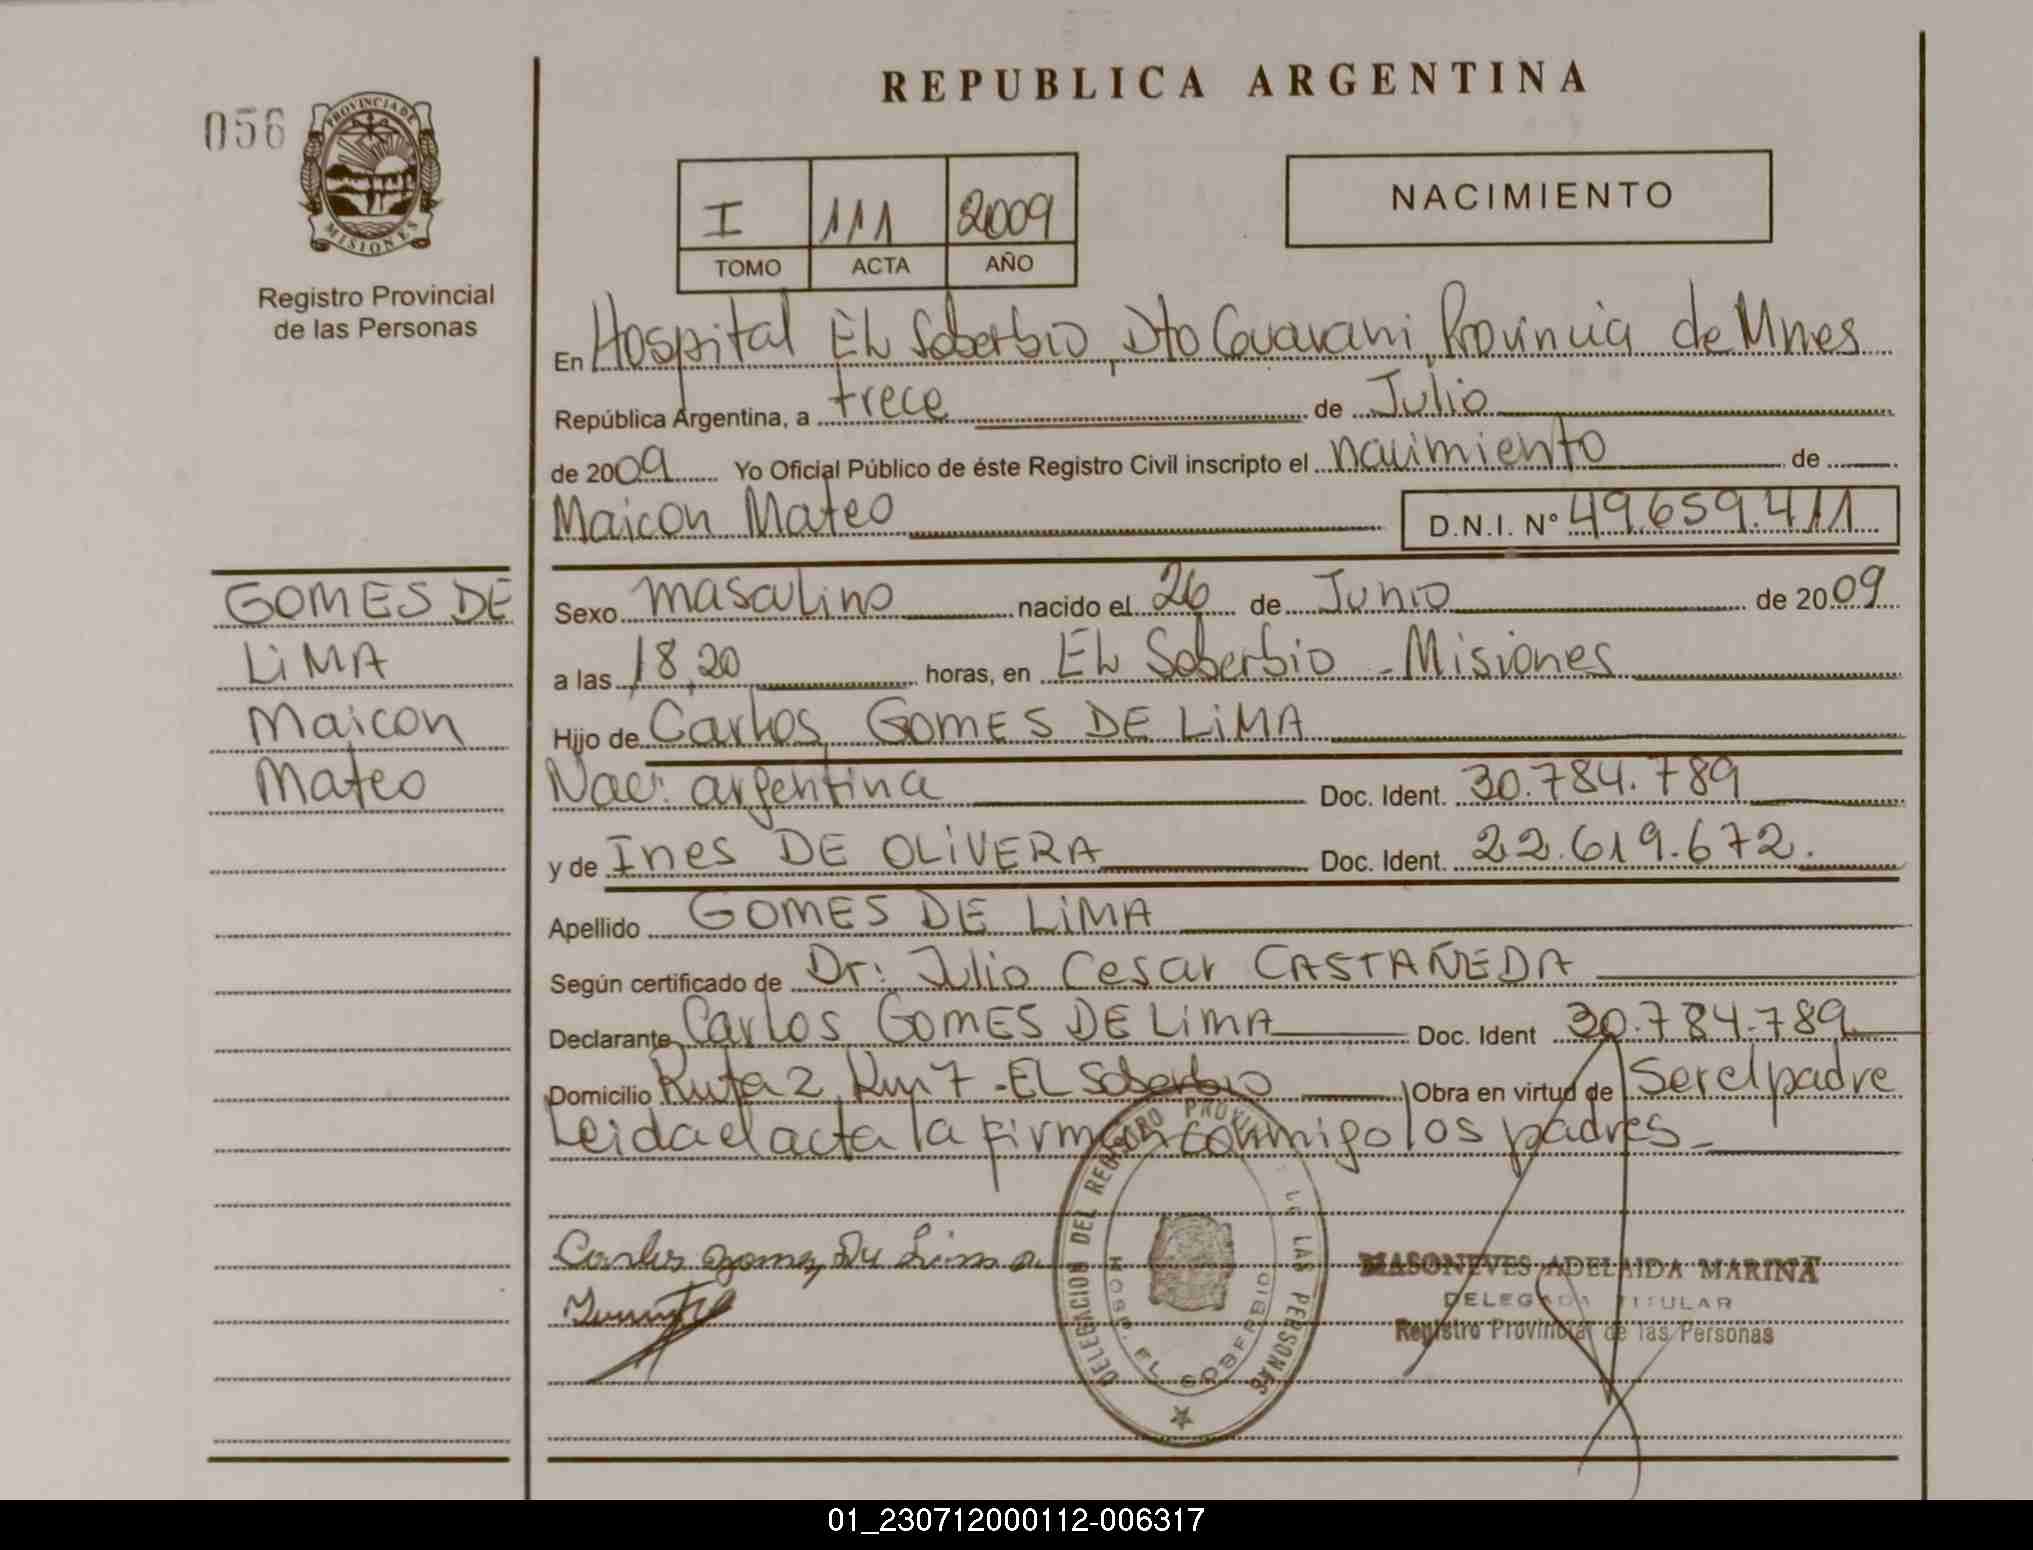 REPUBLICA ARGENTINA
056
PROVINCIA DE
MISIONES
Registro Provincial
de las Personas
I 111 2009
TOMO ACTA AÑO
NACIMIENTO
En Hospital EL Soberbio, Dto Guarani, Provincia de Mnes
República Argentina, a trece de Julio
de 2009 Yo Oficial Público de éste Registro Civil inscripto el nacimiento de
Maicon Mateo D.N.I. Nº 49.659.411
GOMES DE
LiMA
Maicon
Mateo
Sexo masculino nacido el 26 de Junio de 2009
a las 18,20 horas, en EL Soberbio - Misiones
Hijo de Carlos GOMES DE LiMA
Nac: argentina Doc. Ident. 30.784.789
y de Ines DE OLiVERA Doc. Ident. 22.619.672.
Apellido GOMES DE LiMA
Según certificado de Dr: Julio Cesar CASTAÑEDA
Declarante Carlos GOMES DE LimA Doc. Ident 30.784.789
Domicilio Ruta 2 Km 7 - EL Soberbio Obra en virtud de Ser el padre
Leida el acta la firman conmigo los padres -
Carlos gomes De Lima
DELEGACION DEL REGISTRO PROVINCIAL DE LAS PERSONAS
HOSP. EL SOBERBIO
MASONEVES ADELAIDA MARINA
DELEGADA TITULAR
Registro Provincial de las Personas
01_230712000112-006317